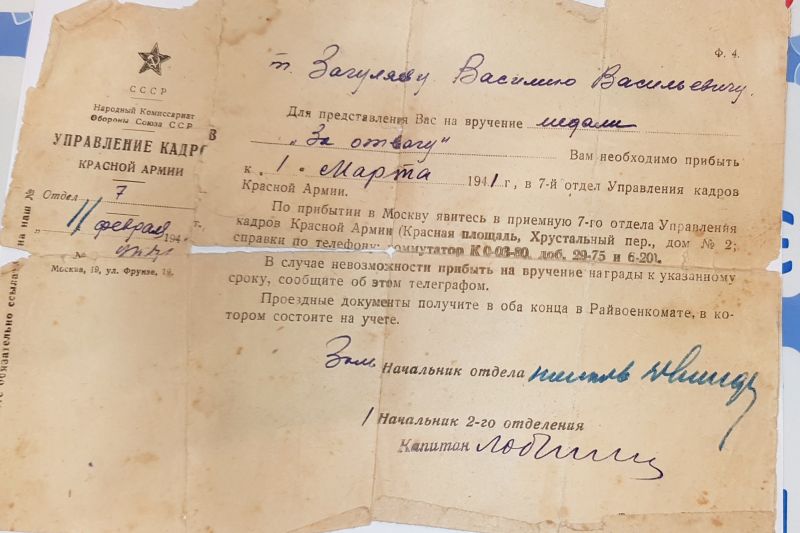 СССР
Народный Комиссариат
Обороны Союза ССР
УПРАВЛЕНИЕ КАДРОВ
КРАСНОЙ АРМИИ
Отдел 7
„11 февраля 194 г.
№
Москва, 19, ул. Фрунзе, 19.
на наш №
обязательно
Ф. 4.
т. Загуляеву Василию Васильевичу.
Для представления Вас на вручение медали
„За отвагу“
Вам необходимо прибыть
к „1“ Марта 1941 г., в 7-й отдел Управления кадров
Красной Армии.
По прибытии в Москву явитесь в приемную 7-го отдела Управления
кадров Красной Армии (Красная площадь, Хрустальный пер., дом № 2;
справки по телефону: коммутатор К 0-03-80, доб. 29-75 и 6-20).
В случае невозможности прибыть на вручение награды к указанному
сроку, сообщите об этом телеграфом.
Проездные документы получите в оба конца в Райвоенкомате, в ко-
тором состоите на учете.
Зам Начальник отдела
Начальник 2-го отделения
Капитан